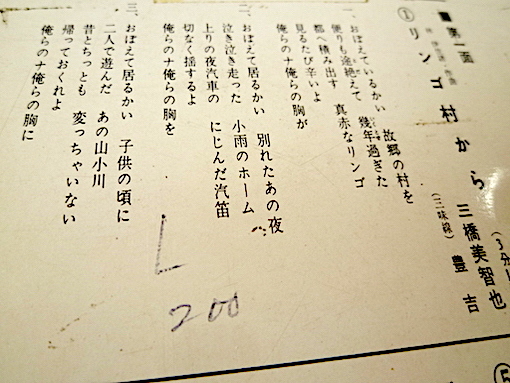 ■第一面
① リンゴ村から 三橋美智也
(三味線) 豊吉
一、おぼえているかい 故郷の村を
便りも途絶えて 幾年過ぎた
都へ積み出す 真赤なリンゴ
見るたび辛いよ
俺らのナ俺らの胸が
二、おぼえて居るかい 別れたあの夜
泣き泣き走った 小雨のホーム
上りの夜汽車の にじんだ汽笛
切なく揺するよ
俺らのナ俺らの胸を
三、おぼえて居るかい 子供の頃に
二人で遊んだ あの山小川
昔とちっとも 変っちゃいない
帰っておくれよ
俺らのナ俺らの胸に
L
200
⑤